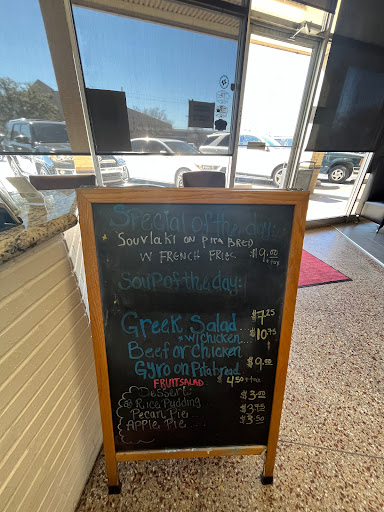 Special of the day:
Souvlaki on Pita Bred
W French Fries $9.00
+tax
Soup of the day:
Greek Salad $7.25
w/chicken... $10.75
Beef or Chicken
Gyro on Pita bread $9.00
FRUIT SALAD $4.50+tax
Dessert:
Rice Pudding $3.00
Pecan Pie $3.95
Apple Pie $3.50